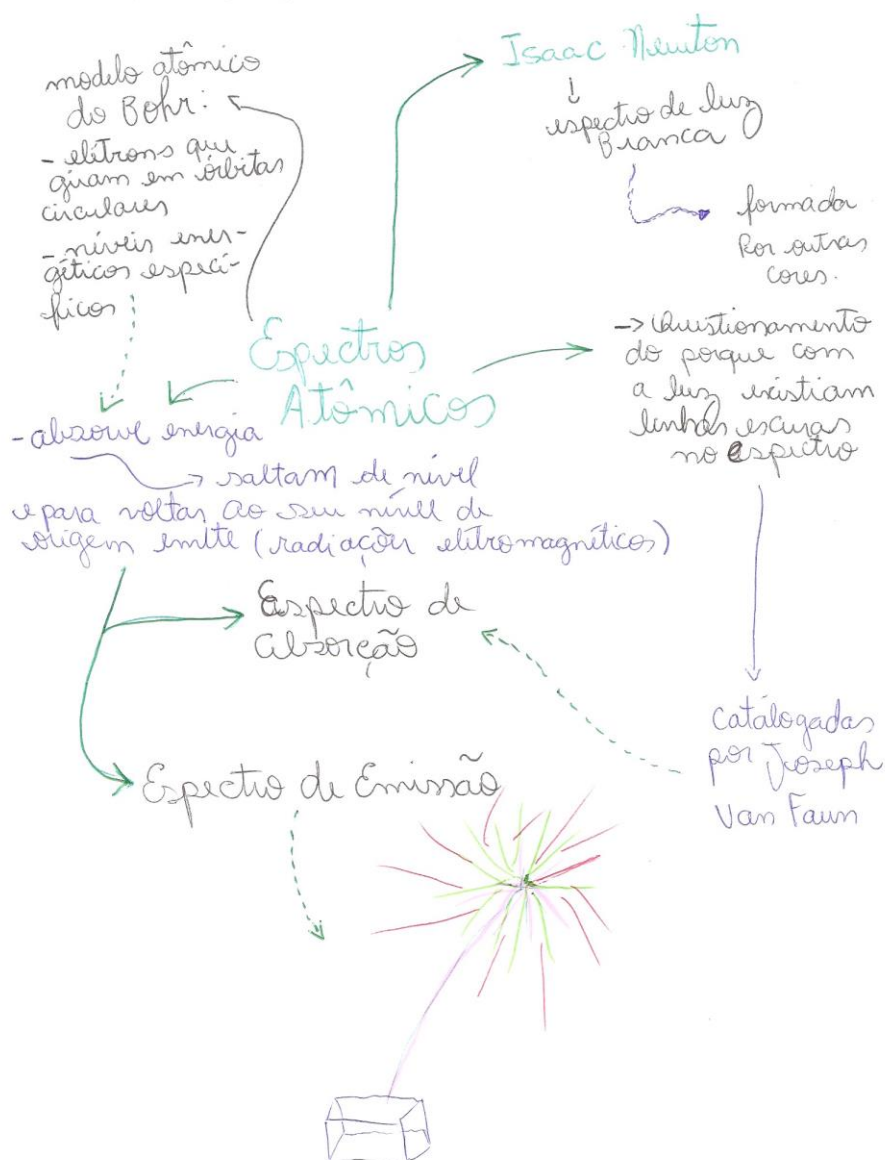 modelo atômico
do Bohr:
- elétrons que
giram em órbitas
circulares
- níveis ener-
géticos especí-
ficos
Isaac Newton
espectro de luz
Branca
formada
Por outras
cores.
Espectros
Atômicos
-> Questionamento
do porque com
a luz existiam
linhas escuras
no espectro
- absorve energia
saltam de nível
e para voltar ao seu nível de
origem emite (radiações elétromagnéticos)
Espectro de
absorção
Espectro de Emissão
catálogadas
por Joseph
Van Faun